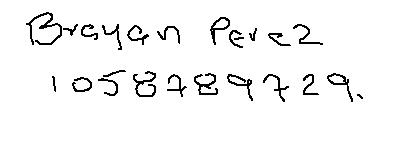 Brayan Perez
1058789729.